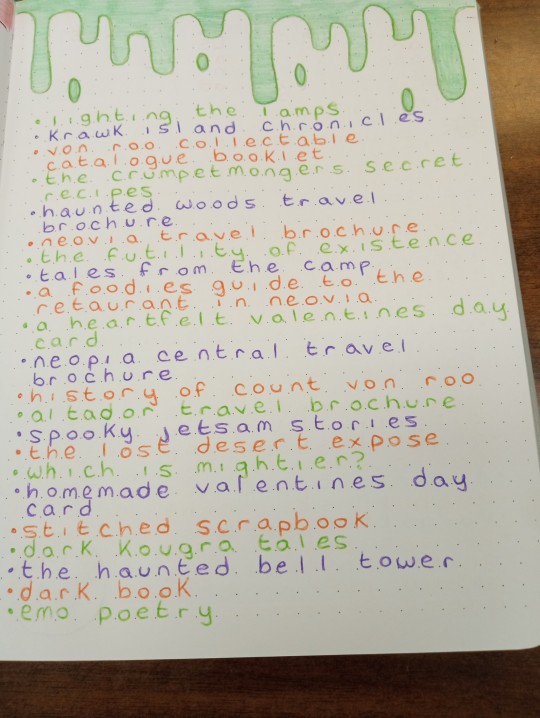 • lighting the lamps
• krawk island chronicles
• von roo collectable
catalogue booklet
• the crumpetmongers secret
recipes
• haunted woods travel
brochure
• neovia travel brochure
• the futility of existence
• tales from the camp
• a foodies guide to the
retaurant in neovia
• a heartfelt valentines day
card
• neopia central travel
brochure
• history of count von roo
• altador travel brochure
• spooky jetsam stories
• the lost desert expose
• which is mightier?
• homemade valentines day
card
• stitched scrapbook
• dark kougra tales
• the haunted bell tower
• dark book
• emo poetry